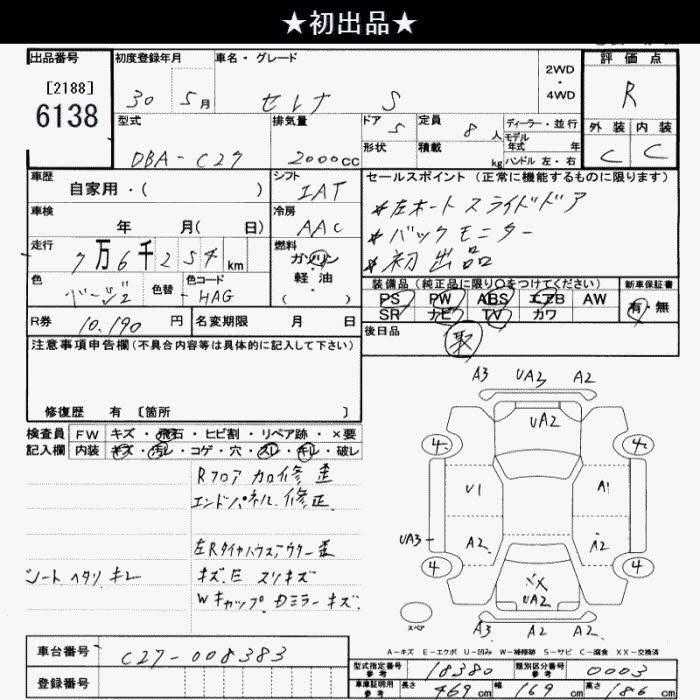 ★初出品★
出品番号 初度登録年月 車名・グレード 評価点
[2188]
6138
30 5月 セレナ S
2WD
・
4WD
R
外装 内装
C C
型式 排気量 ドア 5 定員 8人 ディーラー・並行
モデル
年式 年
DBA-C27 2000cc 形状 積載 kg ハンドル 左・右
車歴 シフト セールスポイント(正常に機能するものに限ります)
自家用・( ) IAT
*左オートスライドドア
車検 冷房
年 月( 日) AAC
*バックモニター
走行 燃料
7万6千254km ガソリン
・
軽油
*初出品
色 色替 色コード
ベージュ2 HAG
装備品(純正品に限り○をつけてください) 新車保証書
PS PW ABS エアB AW 有・無
SR ナビ TV カワ
R券 10,190円 名変期限 月 日
後日品 取
注意事項申告欄(不具合内容等は具体的に記入して下さい)
修復歴 有 [箇所 ]
検査員 FW キズ・飛石・ヒビ割・リペア跡・×要
記入欄 内装 キズ・汚レ・コゲ・穴・スレ・キレ・破レ
Rフロア カロ修 歪
エンドパネル 修正
左Rタイヤハウスアウター歪
シートヘタリ キレ キズ.E スリキズ
Wキャップ Dミラーキズ
A3 UA3 A2
UA2
4 4
U1 A1
UA3 A2 A2
4 4
XX
UA2
スペア
A3 A2 A2
A-キズ E-エクボ U-凹み W-補修跡 S-サビ C-腐食 XX-交換済
車台番号 C27-008383
登録番号
型式指定番号 参考 18380 類別区分番号 参考 0003
車庫証明用 参考 長さ 469cm 幅 169cm 高さ 186cm